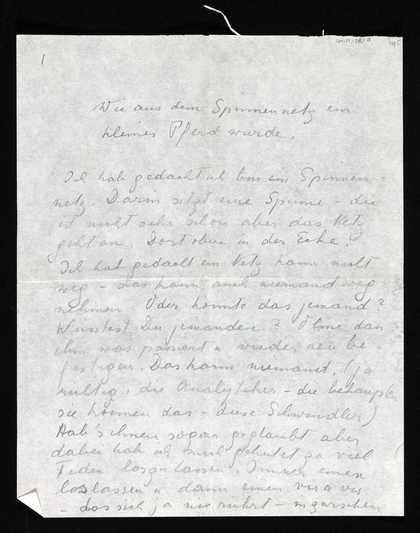 1
Wie aus dem Spinnennetz ein
kleines Pferd wurde.
Ich hab gedacht ich bin ein Spinnen-
netz. Darin sitzt eine Spinne - die
ist nicht sehr schön aber das Netz
geht an. Dort oben in der Ecke.
Ich hab gedacht ein Netz kann nicht
weg - das kann auch niemand weg
nehmen. Oder könnte das jemand?
Wüsstest Du jemanden? Ohne dass
ihm was passiert u wieder neu be-
festigen. Das kann niemand. (ja
richtig, die Analytiker - die behaupten
sie können das - diese Schwindler)
Hab's ihnen sogar geglaubt aber
dabei hab ich mich gehütet zu viel
Fäden loszulassen. Immer einen
loslassen u dann einen vis a vis
- das sich ja nie rührt - inzwischen